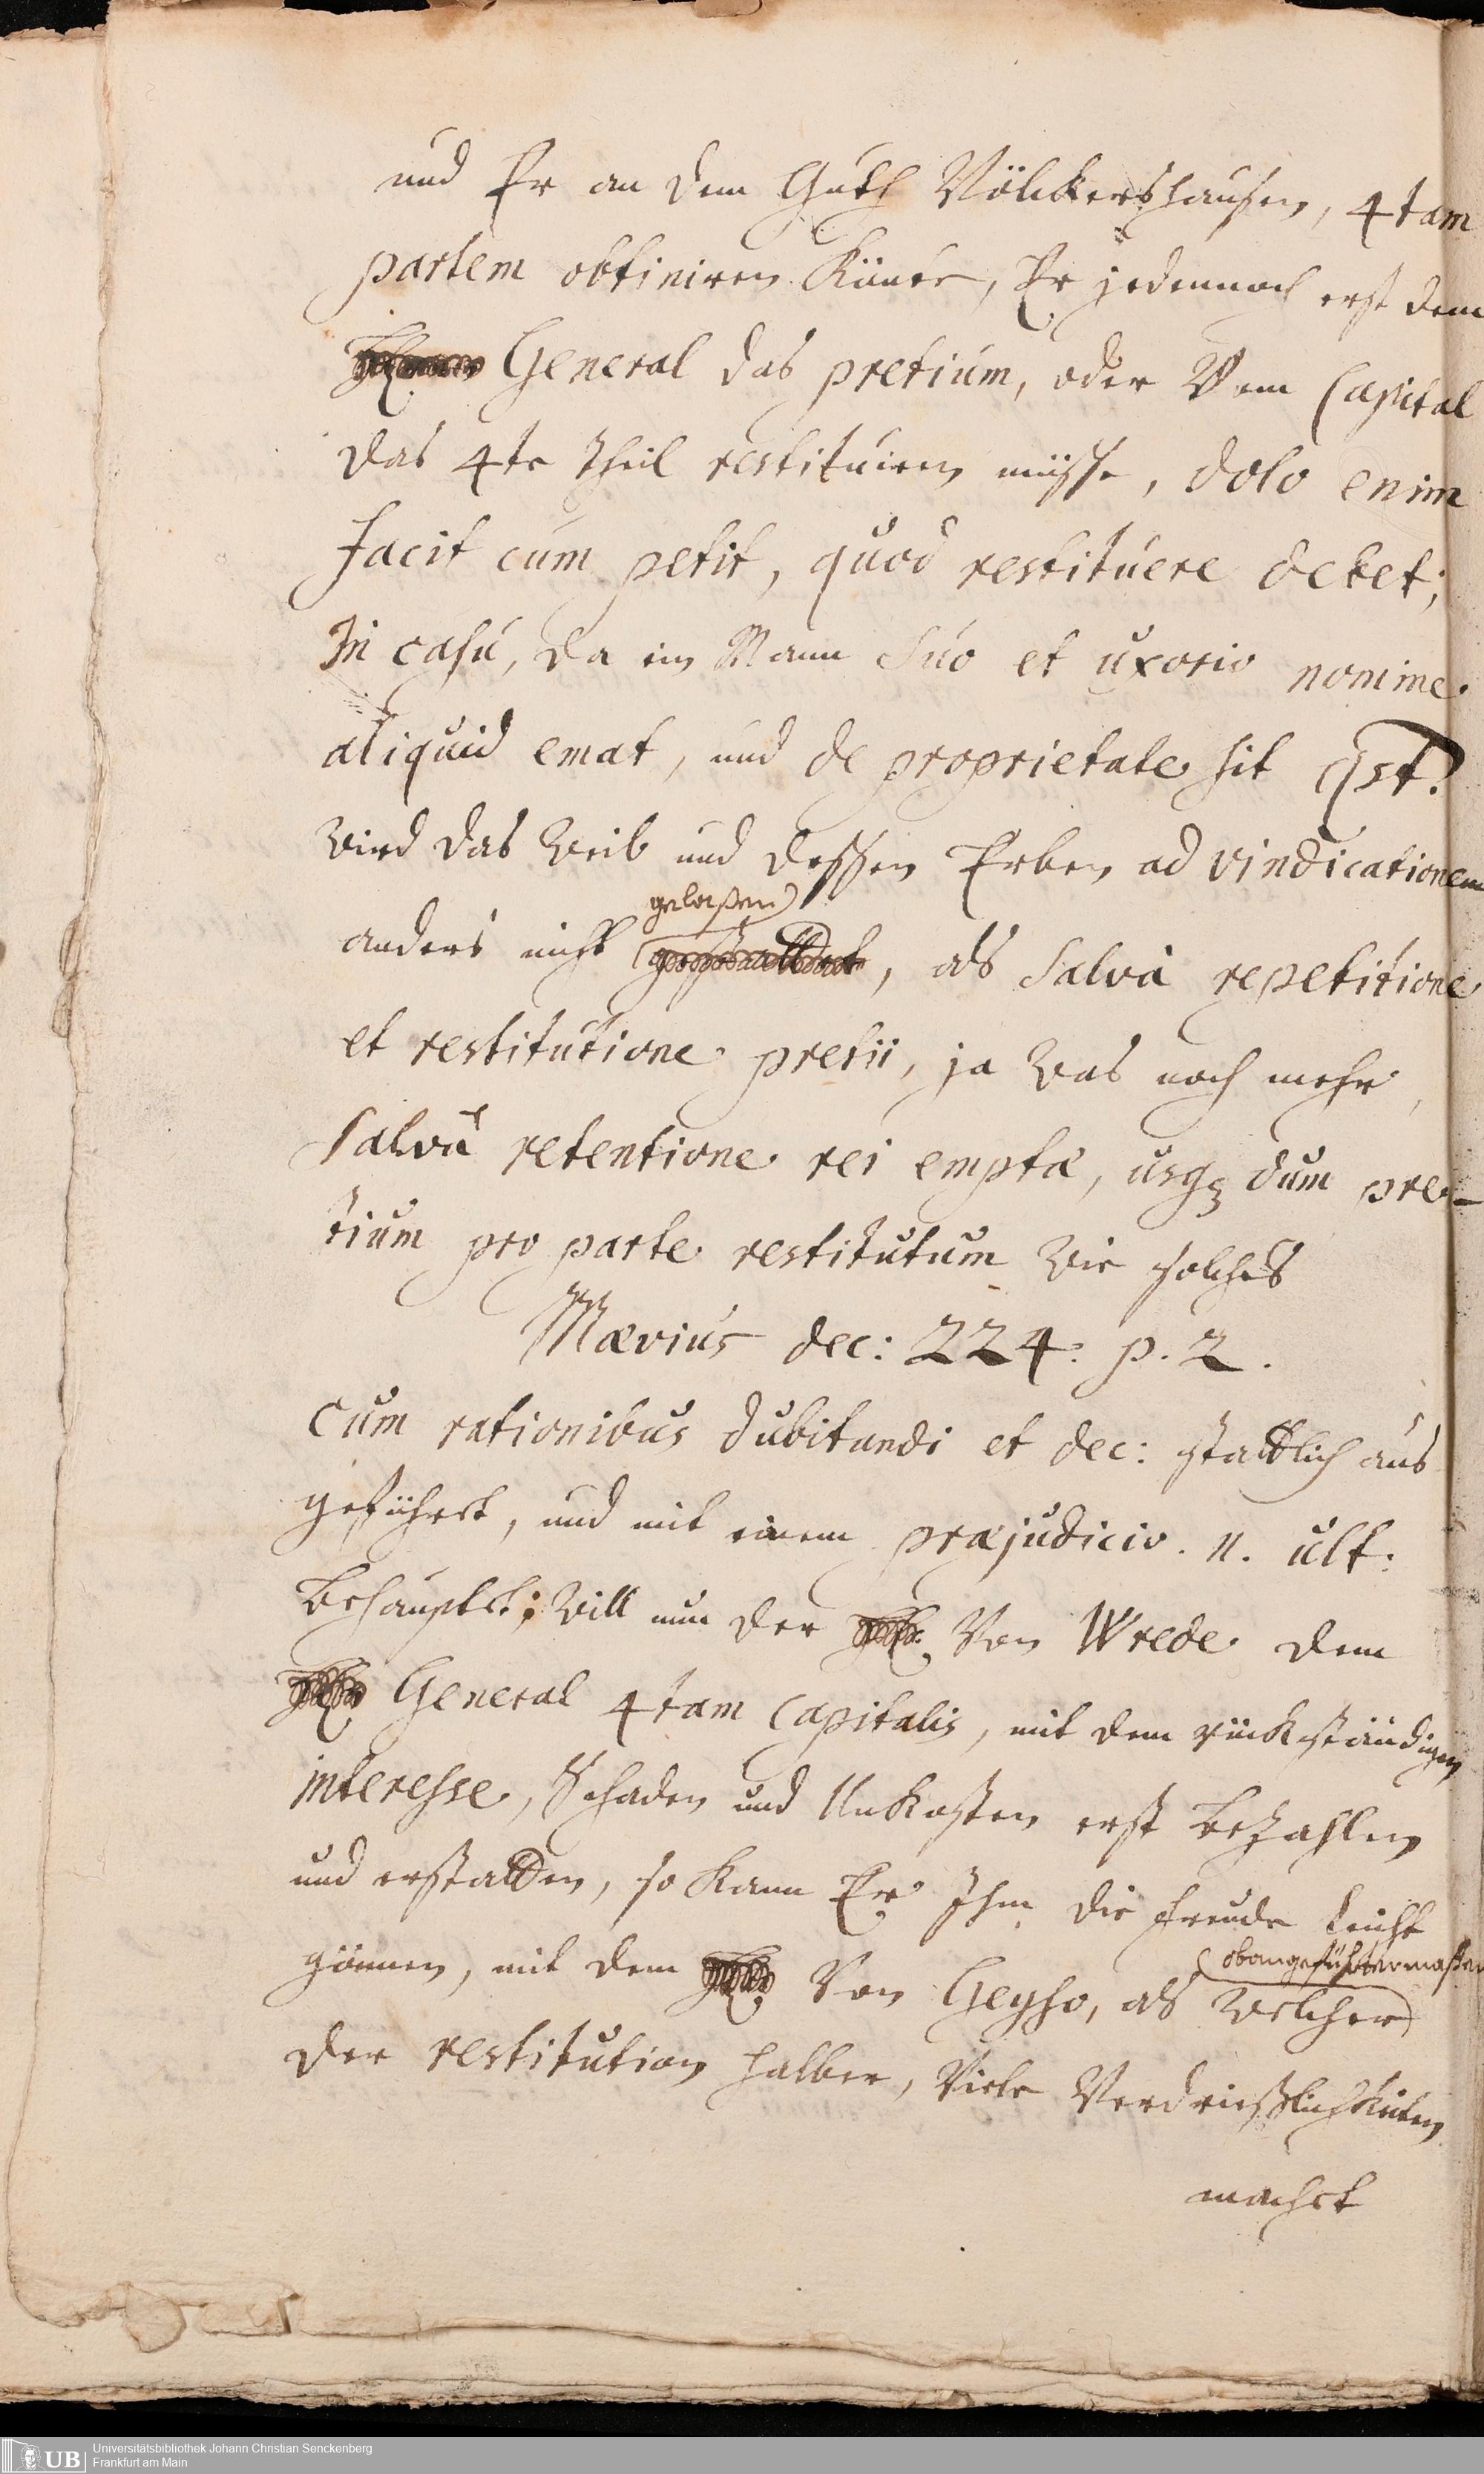 und Er an dem Guth Völckershausen, 4tam
partem obtiniren könte, Er jedennoch erst dem
General das pretium, oder Vom Capital
das 4te theil restituiren müsse, dolo enim
facit cum petit, quod restituere debet;
In casu, da ein Mann suo et uxorio nomine
aliquid emat, und de proprietate sit Qst.
wird das Weib und dessen Erben ad vindicationem
gelaßen
anders nicht gestattet, als salvâ repetitione
et restitutione pretii, ja was noch mehr,
salvâ retentione rei emptæ, usq dum pre-
tium pro parte restitutum wie solches
Mævius dec: 224. p. 2.
cum rationibus dubitandi et dec: stattlich aus
geführet, und mit einem præjudicio. n. ult.
behauptet; Will nun der Von Wrede dem
General 4tam Capitalis, mit dem rückständigen
interesse, Schaden und Unkosten erst bezahlen
und erstatten, so kann Er Ihm die freude leicht
obangeführtermaßen
gönnen, mit dem Von Geyso, als welcher
der restitution halber, Viele Verdrießlichkeiten
machet
Universitätsbibliothek Johann Christian Senckenberg
Frankfurt am Main
UB